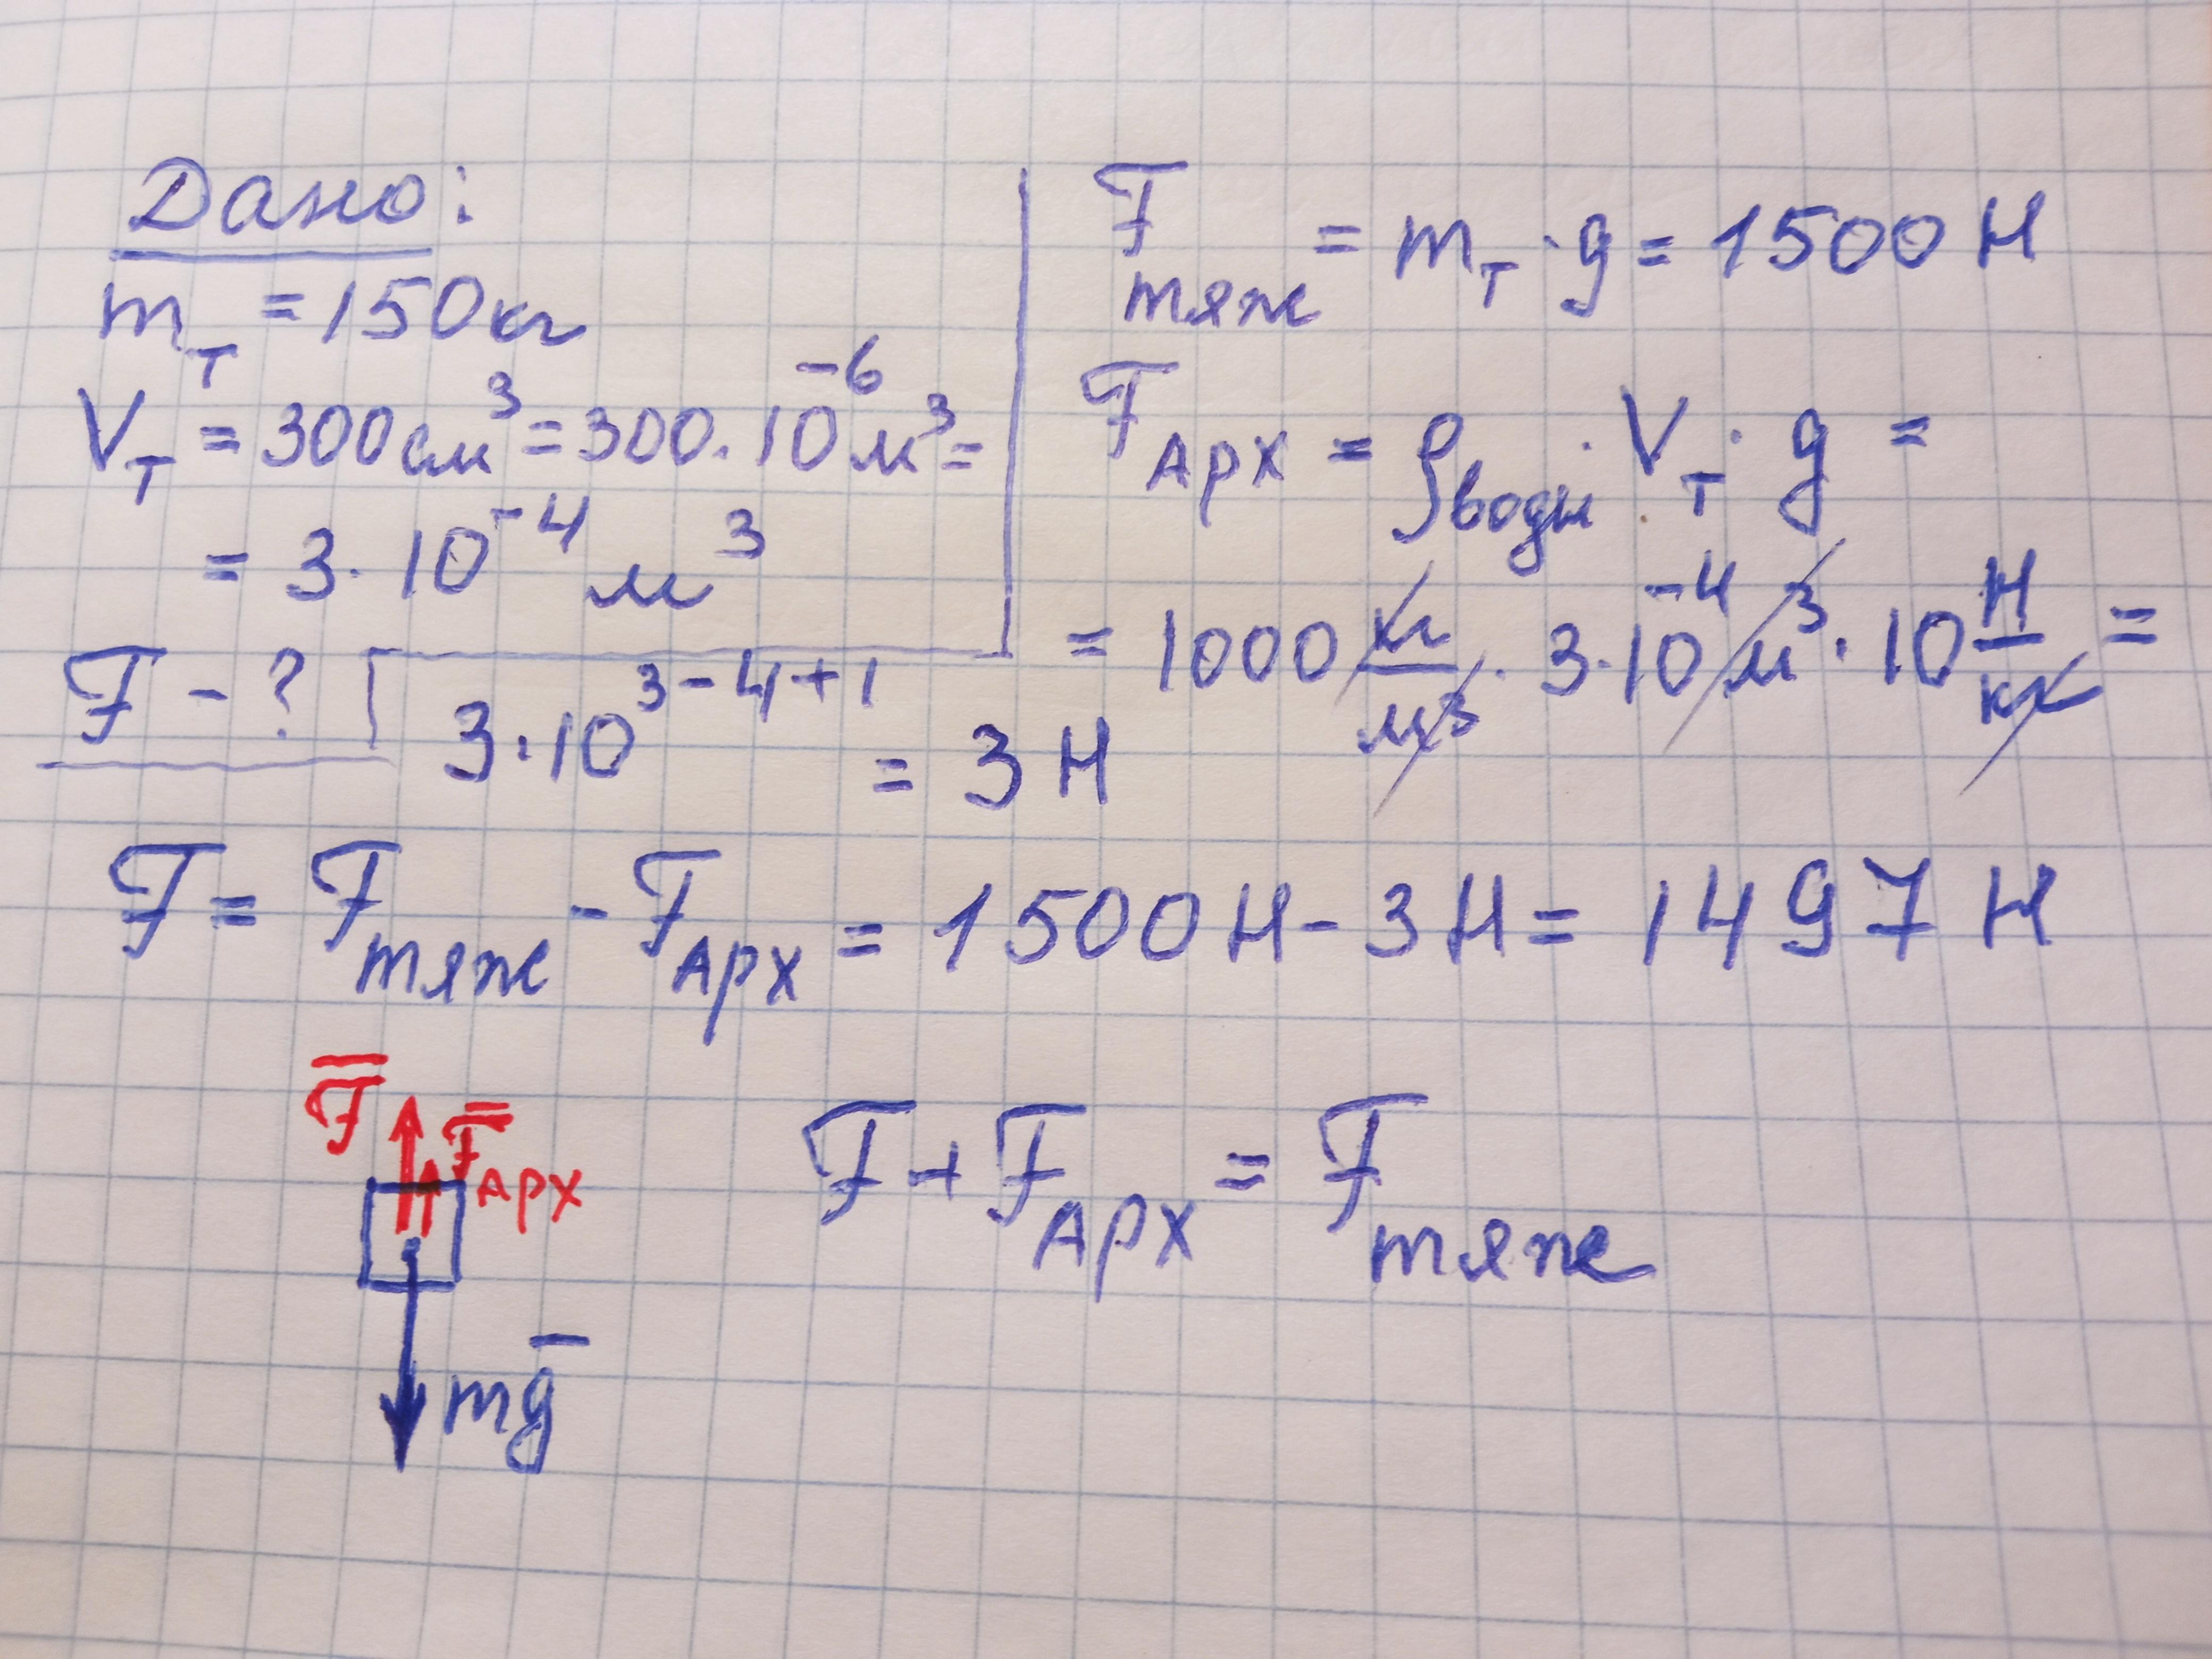 Дано:
m_т = 150 кг
V_т = 300 см³ = 300 · 10⁻⁶ м³ =
= 3 · 10⁻⁴ м³
F - ?
F_тяж = m_т · g = 1500 Н
F_Арх = ρ_воды · V_т · g =
= 1000 кг/м³ · 3 · 10⁻⁴ м³ · 10 Н/кг =
3 · 10³⁻⁴⁺¹ = 3 Н
F = F_тяж - F_Арх = 1500 Н - 3 Н = 1497 Н
F̅
F̅_Арх
mg̅
F + F_Арх = F_тяж